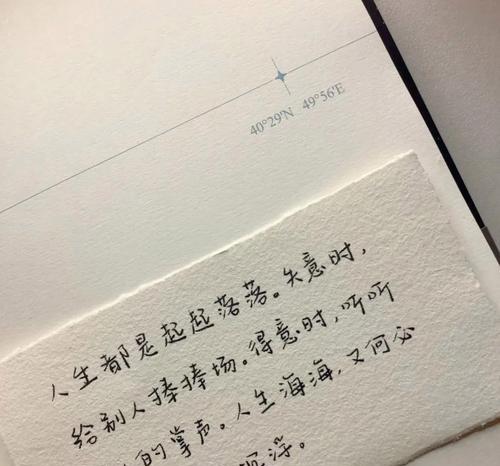 40°29'N 49°56'E
人生都是起起落落。失意时，
给别人捧捧场。得意时，听听
的掌声。人生海海，又何必
浮。